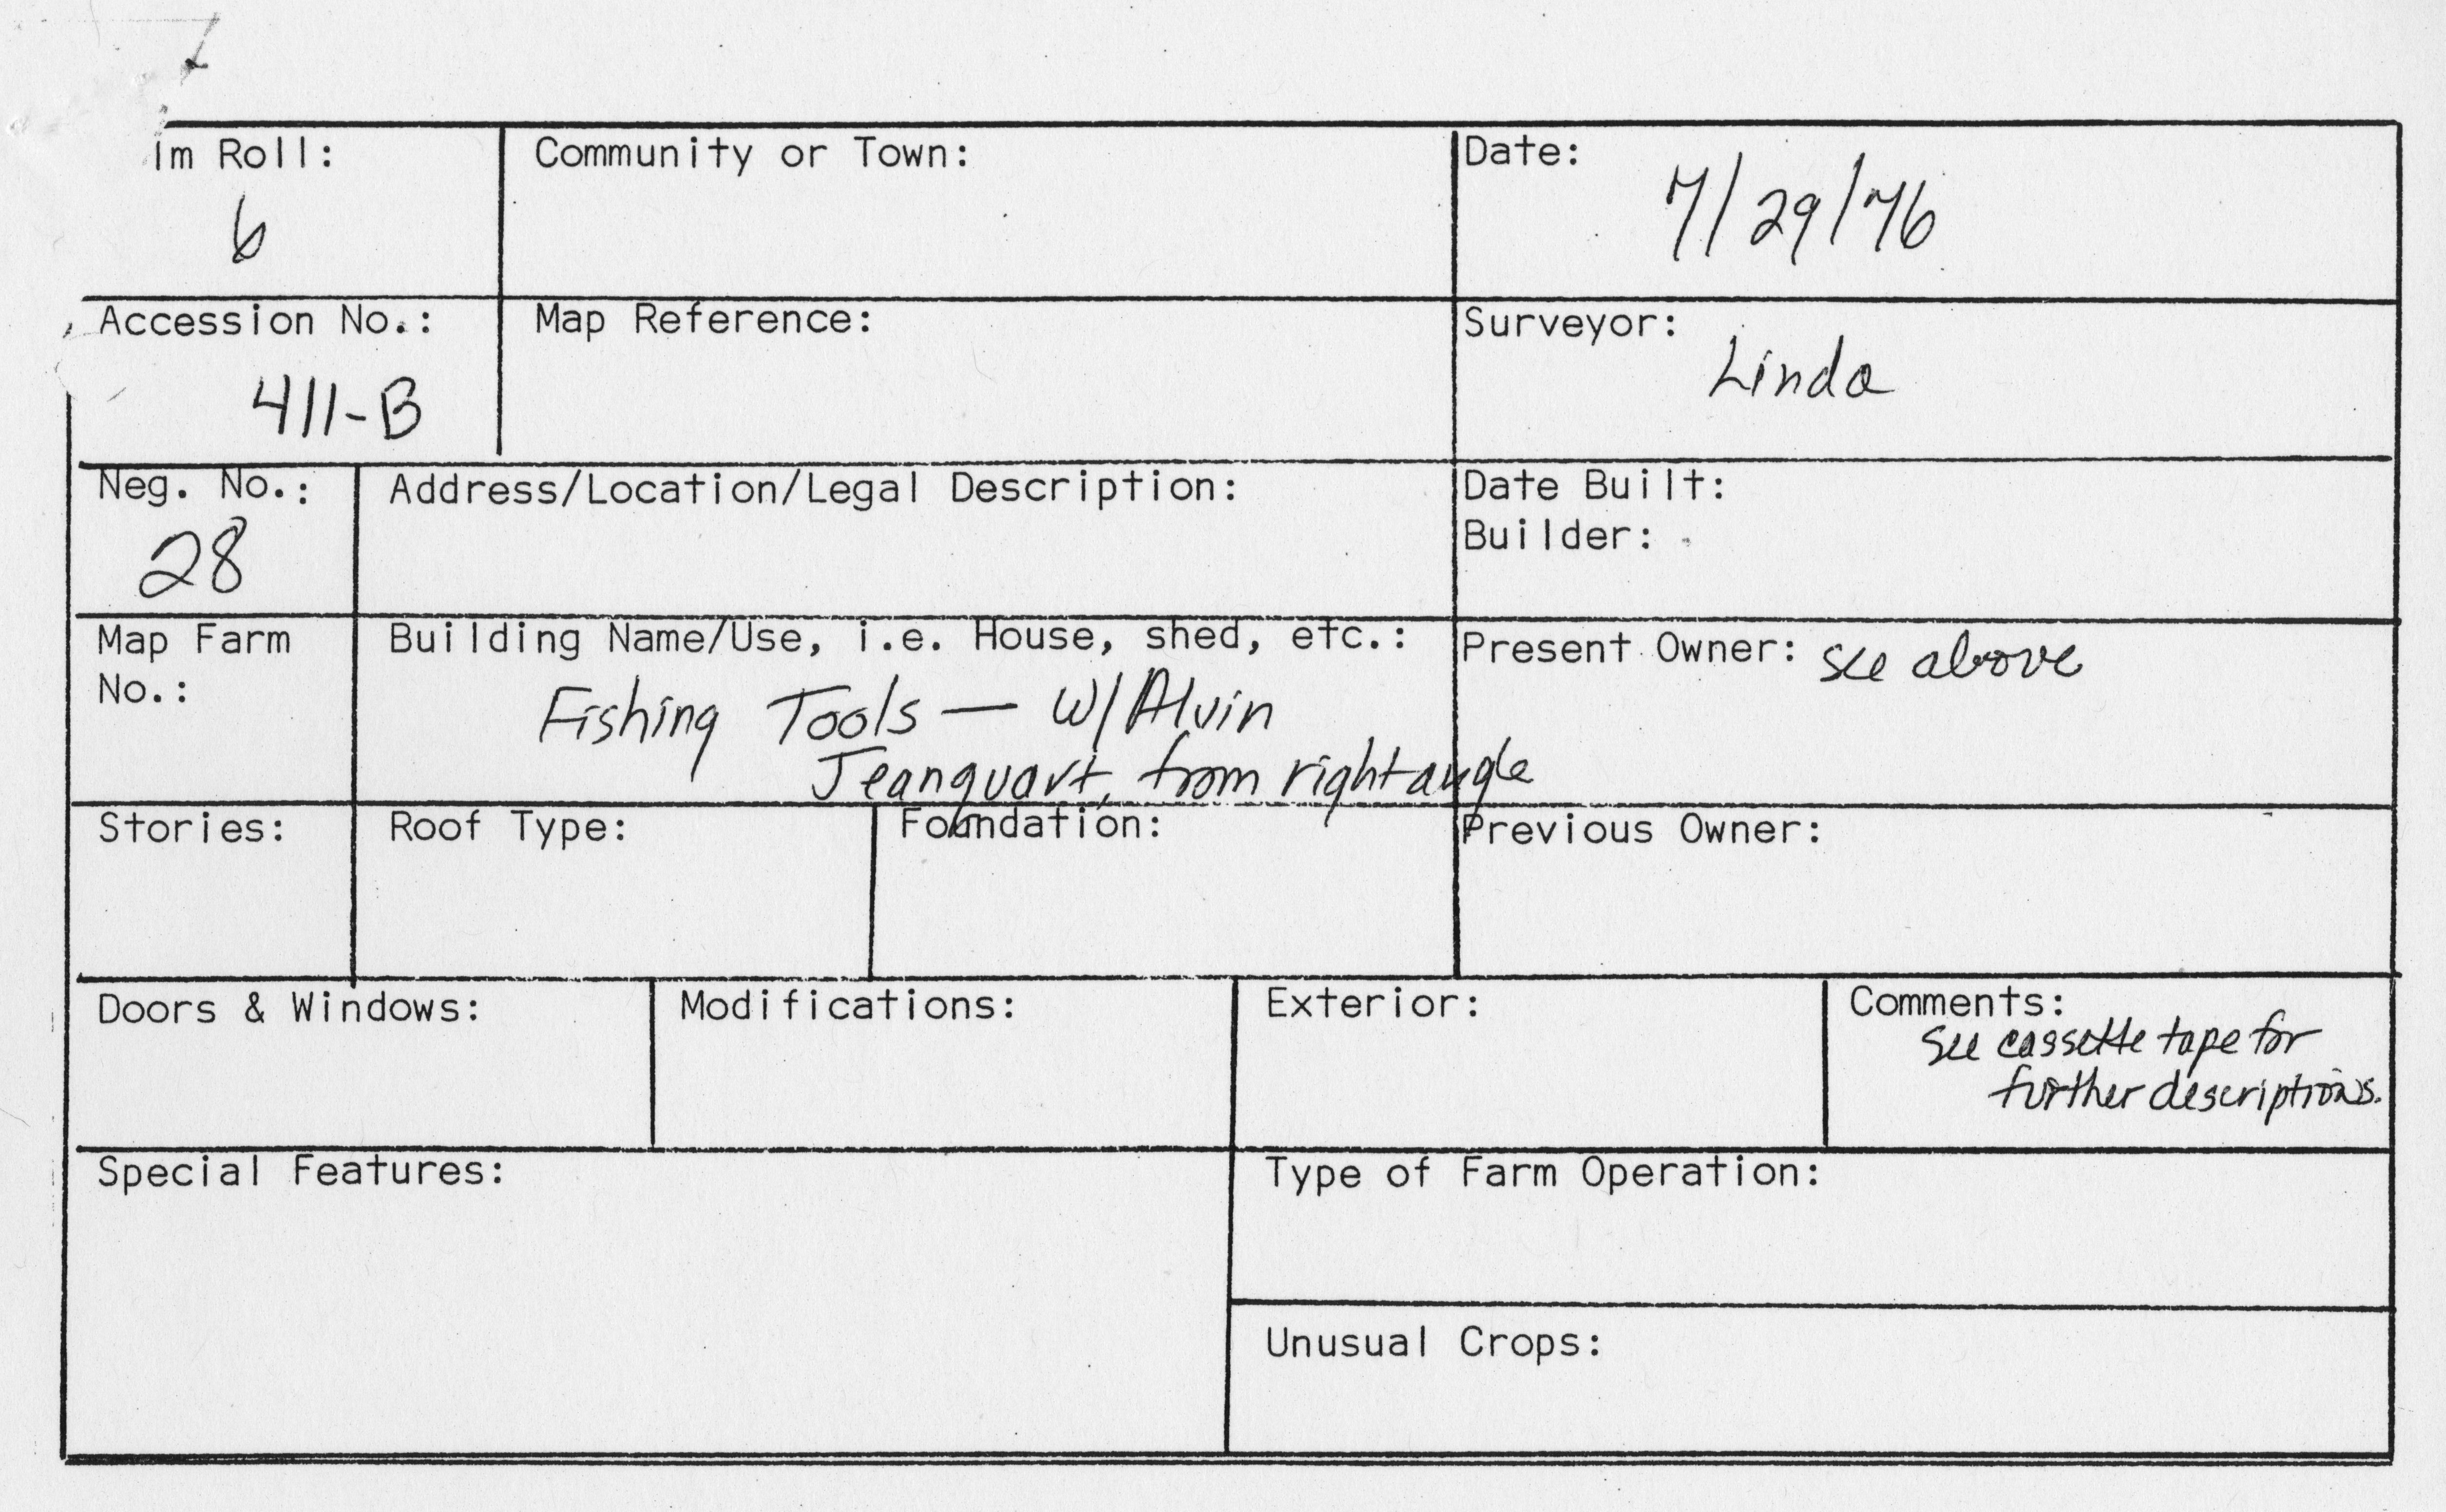 im Roll:
6
Community or Town:
Date:
7/29/76
Accession No.:
411-B
Map Reference:
Surveyor:
Linda
Neg. No.:
28
Address/Location/Legal Description:
Date Built:
Builder:
Map Farm
No.:
Building Name/Use, i.e. House, shed, etc.:
Fishing Tools — W/Alvin
Jeanquart, from right angle
Present Owner: see above
Stories:
Roof Type:
Foundation:
Previous Owner:
Doors & Windows:
Modifications:
Exterior:
Comments:
See cassette tape for
further descriptions.
Special Features:
Type of Farm Operation:
Unusual Crops: